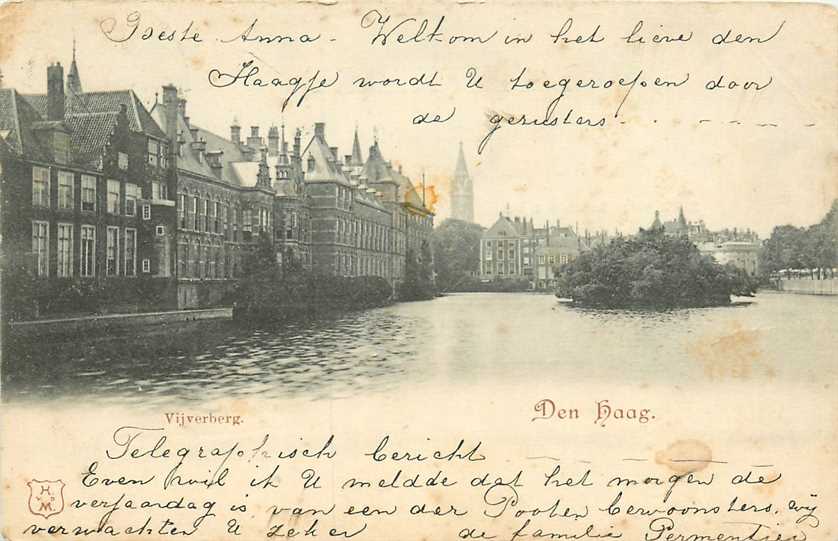 Beste Anna - Welkom in het lieve den
Haagje wordt U toegeroepen door
de gezusters. . - - - - -
Vijverberg.
Den Haag.
Telegraphisch bericht - - - -
Even wil ik U melde dat het morgen de
verjaardag is van een der Pooten bewoonsters, wij
verwachten U zeker de familie
H M